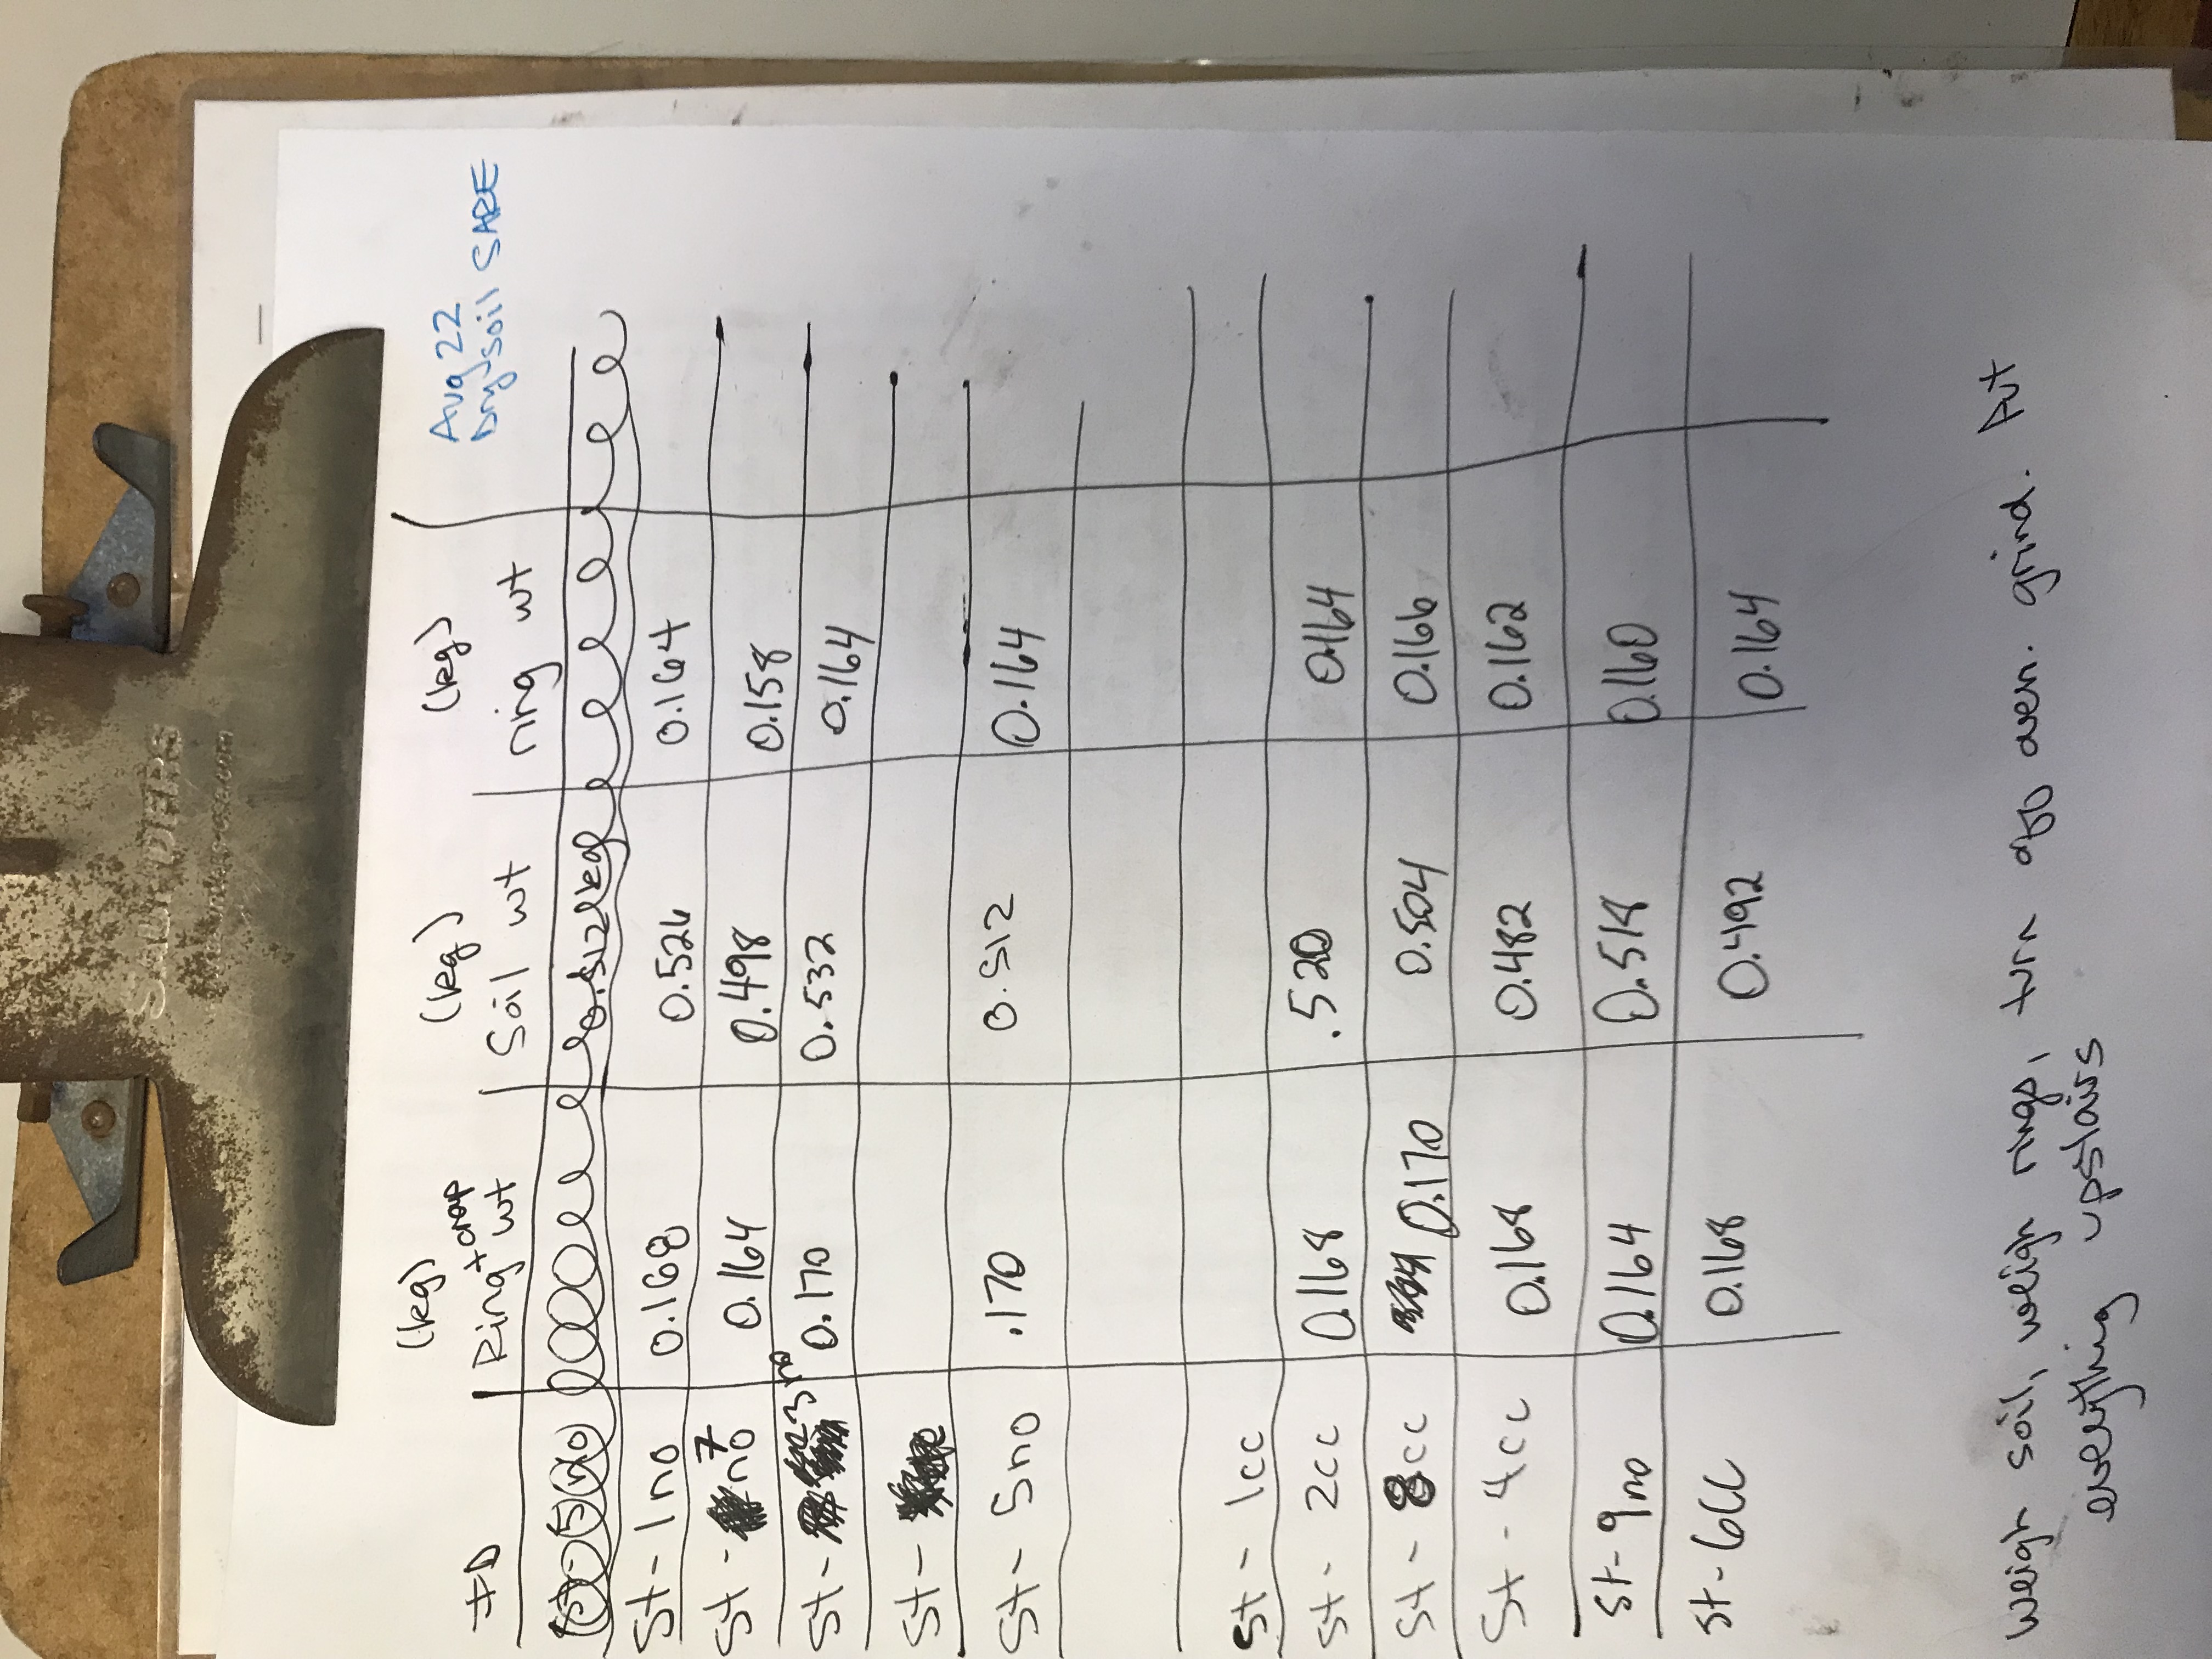 SAUNDERS
(kg) (kg) (kg)
ID Ring + crap wt Soil wt ring wt
Aug 22
Dry soil SARE
St-5no 0.512 kg
St-1no 0.168 0.526 0.164
St-7no 0.164 0.498 0.158
St-3no 0.170 0.532 0.164
St-
St-5no .170 0.512 0.164
St-1cc
St-2cc 0.168 .520 0.164
St-8cc 0.170 0.504 0.166
St-4cc 0.168 0.482 0.162
St-9no 0.164 0.518 0.160
St-6CC 0.168 0.492 0.164
Weigh soil, weigh rings, turn off oven. grind. Put
everything upstairs